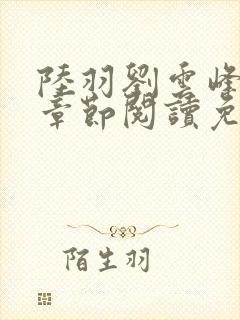 陸羽劉雲峰
章節閱讀免
陌生羽